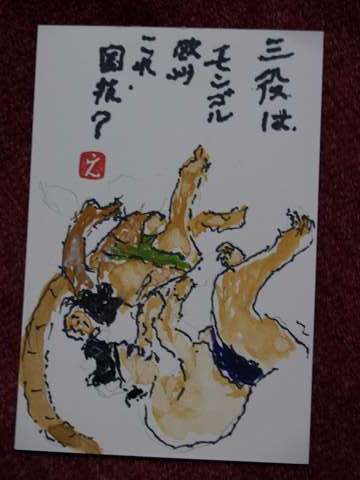 三役は、
モンゴル
欧州
これ
国技？
え